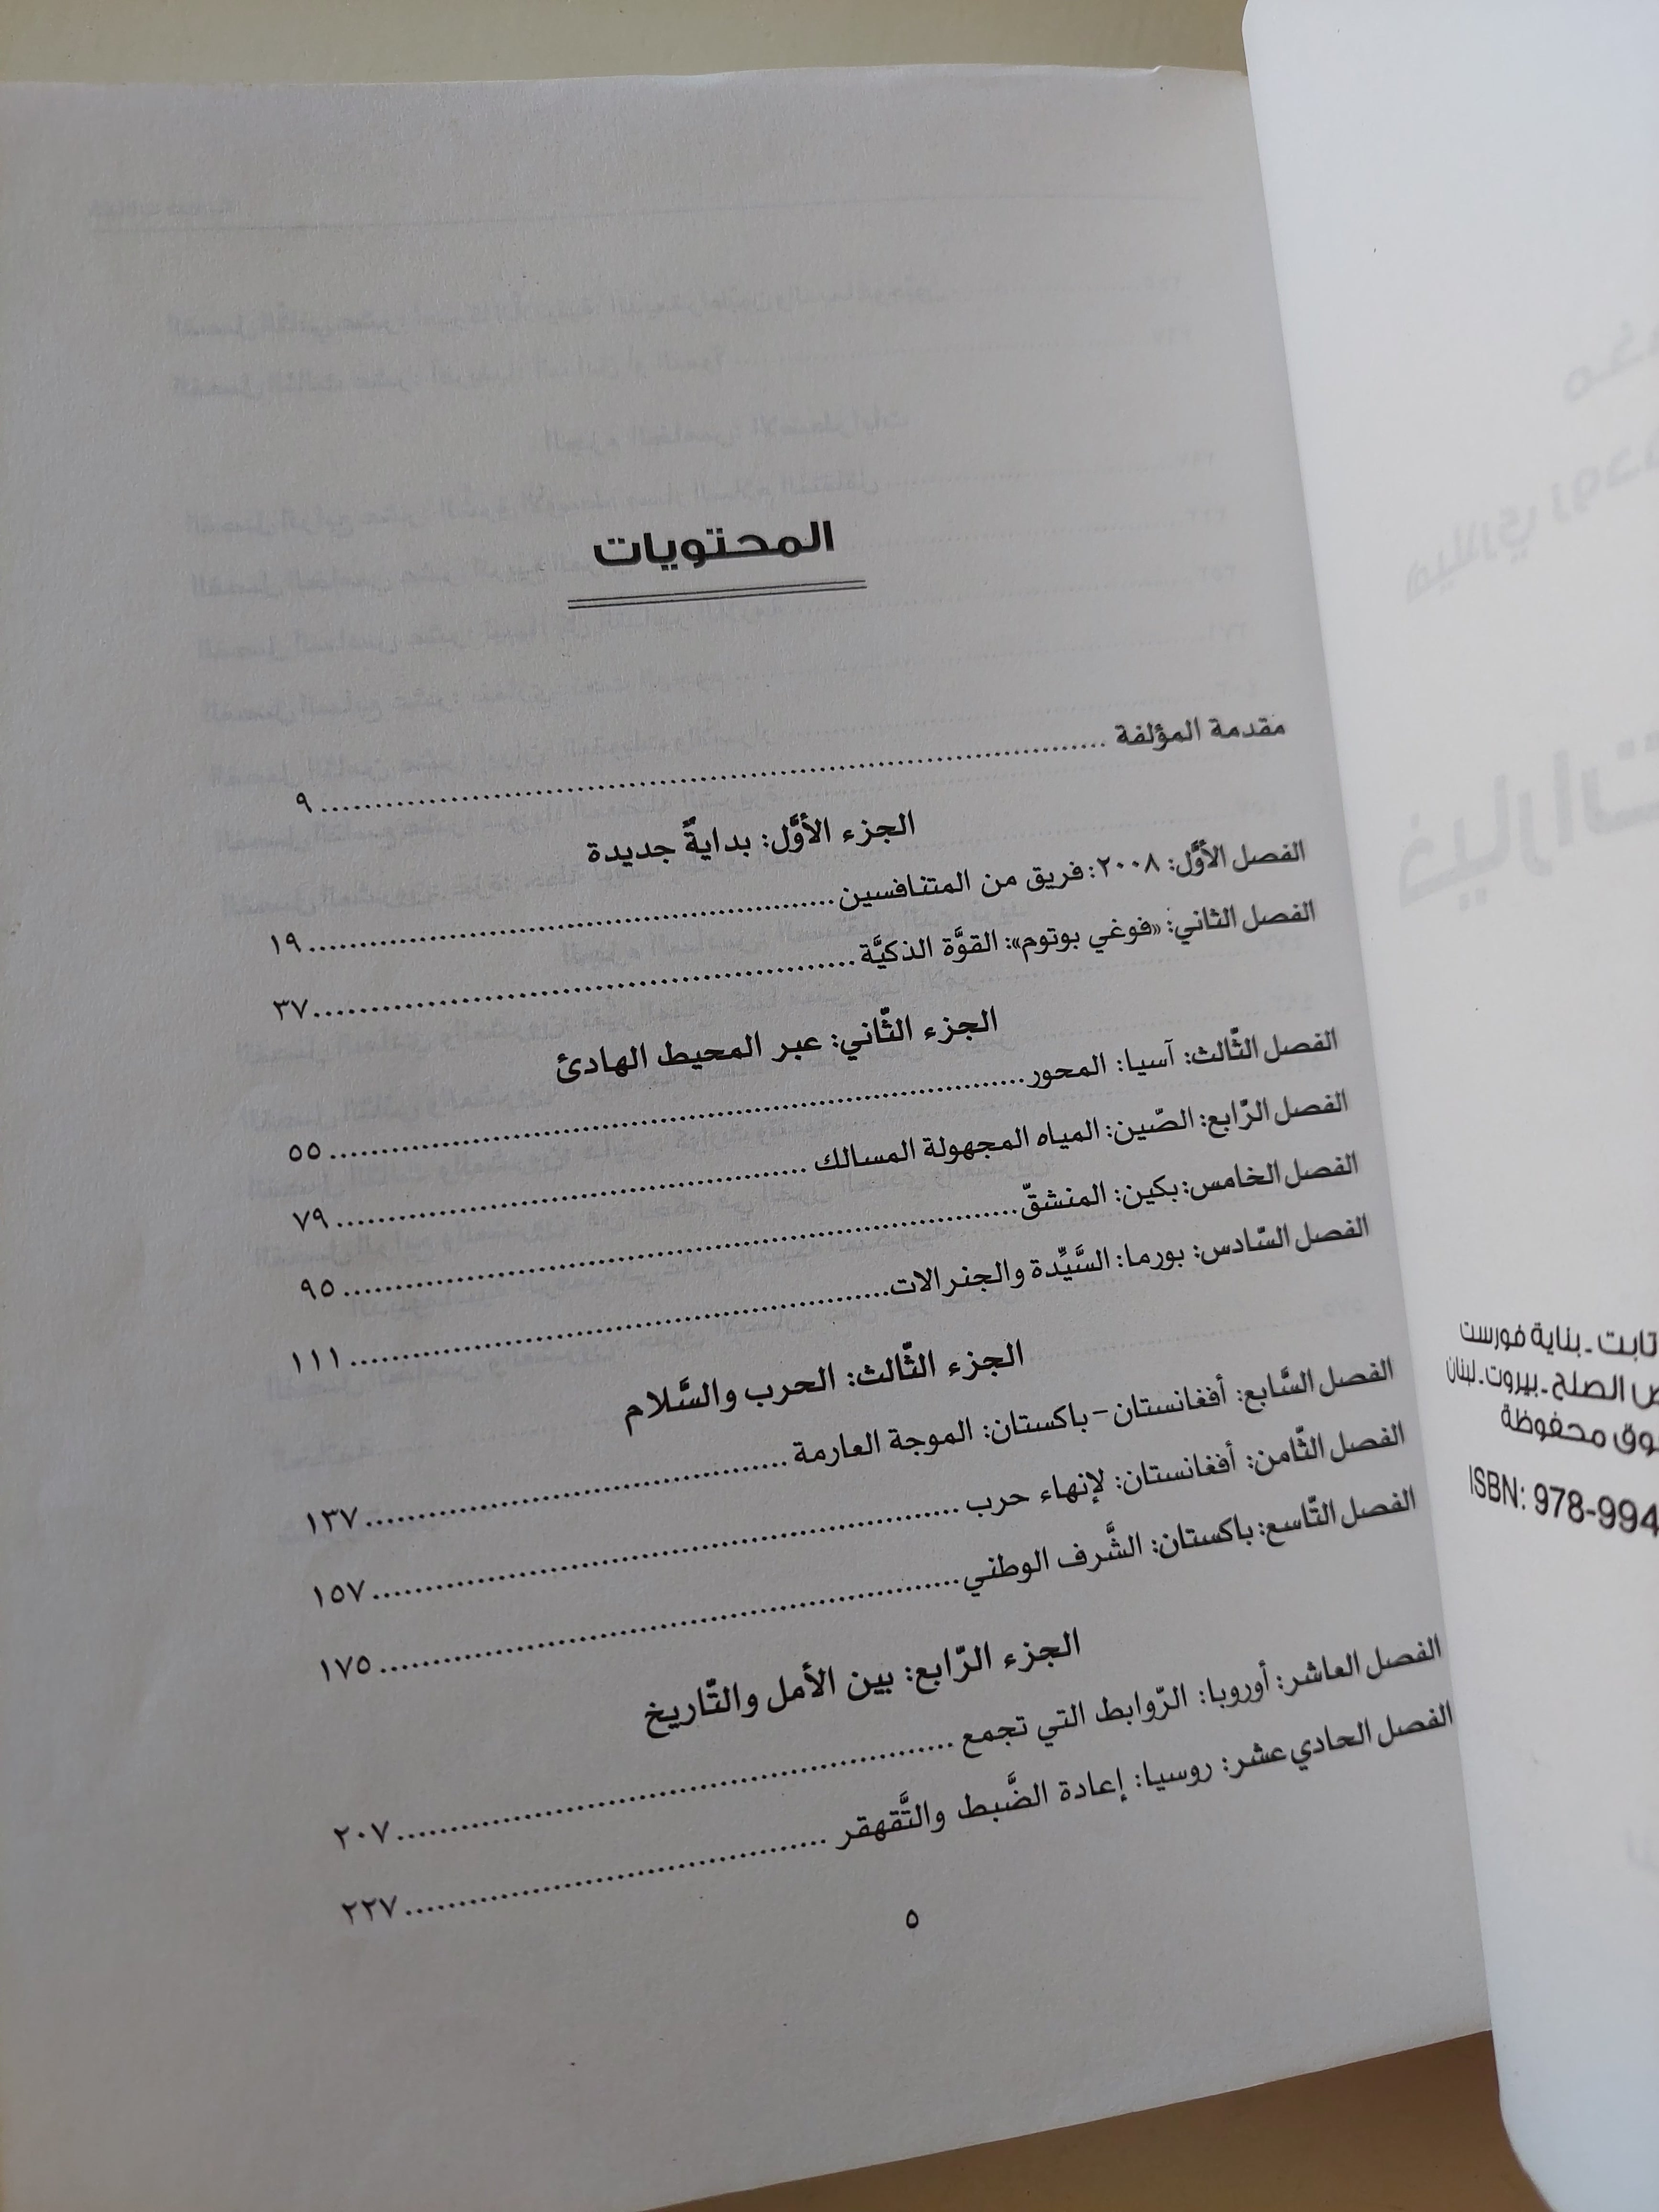 المحتويات
مقدمة المؤلفة .......... ٩
الجزء الأوَّل: بدايةٌ جديدة
الفصل الأوَّل: ٢٠٠٨: فريق من المتنافسين .......... ١٩
الفصل الثاني: «فوغي بوتوم»: القوَّة الذكيَّة .......... ٣٧
الجزء الثّاني: عبر المحيط الهادئ
الفصل الثّالث: آسيا: المحور .......... ٥٥
الفصل الرّابع: الصّين: المياه المجهولة المسالك .......... ٧٩
الفصل الخامس: بكين: المنشقّ .......... ٩٥
الفصل السّادس: بورما: السَّيِّدة والجنرالات .......... ١١١
الجزء الثّالث: الحرب والسَّلام
الفصل السَّابع: أفغانستان - باكستان: الموجة العارمة .......... ١٣٧
الفصل الثّامن: أفغانستان: لإنهاء حرب .......... ١٥٧
الفصل التّاسع: باكستان: الشَّرف الوطني .......... ١٧٥
الجزء الرّابع: بين الأمل والتّاريخ
الفصل العاشر: أوروبا: الرّوابط التي تجمع .......... ٢٠٧
الفصل الحادي عشر: روسيا: إعادة الضَّبط والتَّقهقر .......... ٢٢٧
٥
هيلاري
خيارات
تابت ـ بناية فورست
الصلح ـ بيروت ـ لبنان
محفوظة
ISBN: 978-994